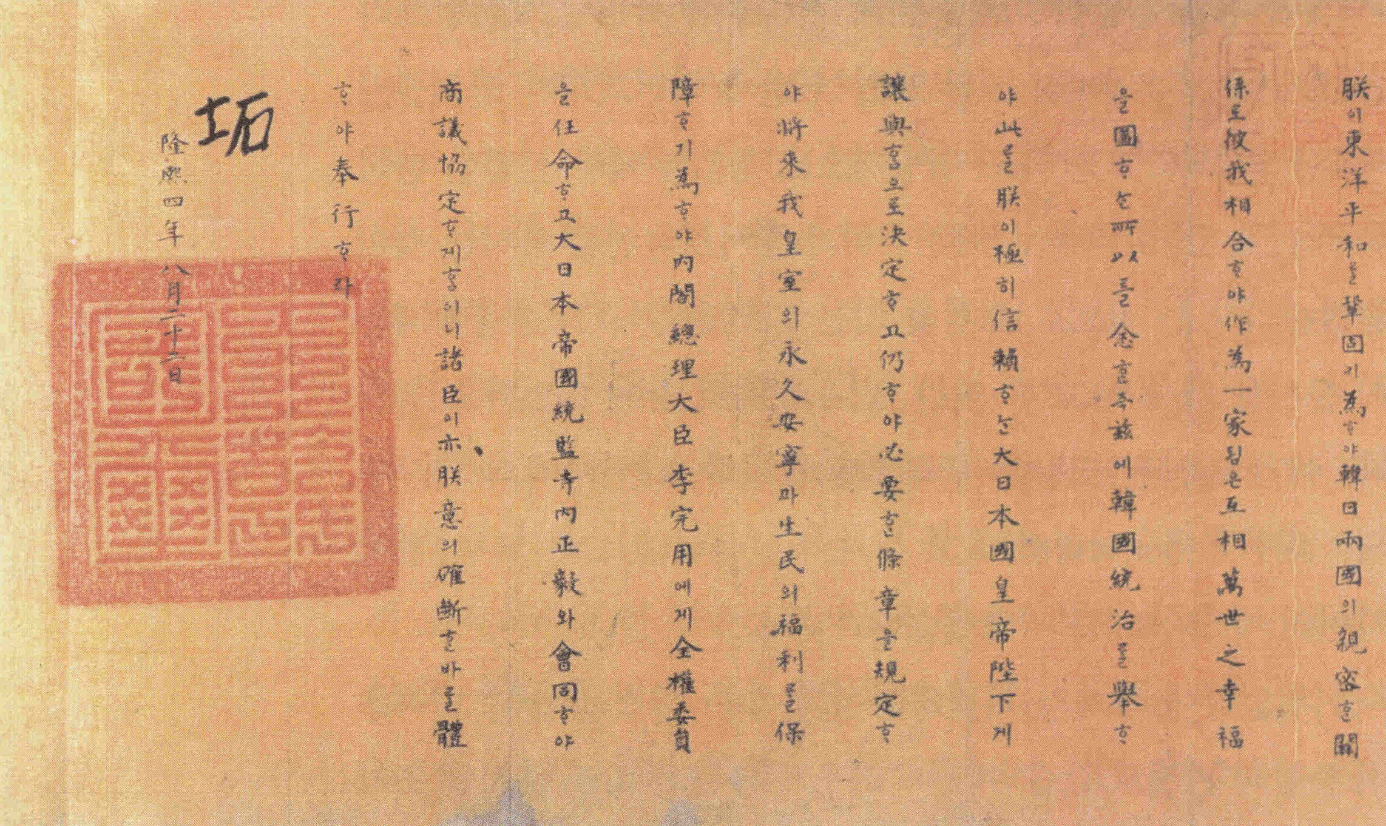 朕이東洋平和를鞏固기爲ᄒᆞ야韓日兩國의親密ᄒᆞᆫ關
係로彼我相合ᄒᆞ야作爲一家됨은互相萬世之幸福
을圖ᄒᆞᄂᆞᆫ所以를念ᄒᆞᆫ즉玆에韓國統治를擧ᄒᆞ
야此를朕이極히信賴ᄒᆞᄂᆞᆫ大日本國皇帝陛下게
讓與ᄒᆞᆷ으로決定ᄒᆞ고仍ᄒᆞ야必要ᄒᆞᆫ條章을規定ᄒᆞ
야將來我皇室의永久安寧과生民의福利를保
障ᄒᆞ기爲ᄒᆞ야內閣總理大臣李完用에게全權委員
을任命ᄒᆞ고大日本帝國統監寺內正毅와會同ᄒᆞ야
商議協定ᄒᆞ게ᄒᆞᆷ이니諸臣이亦朕意의確斷ᄒᆞᆫ바를體
ᄒᆞ야奉行ᄒᆞ라
坧
隆熙四年八月二十二日